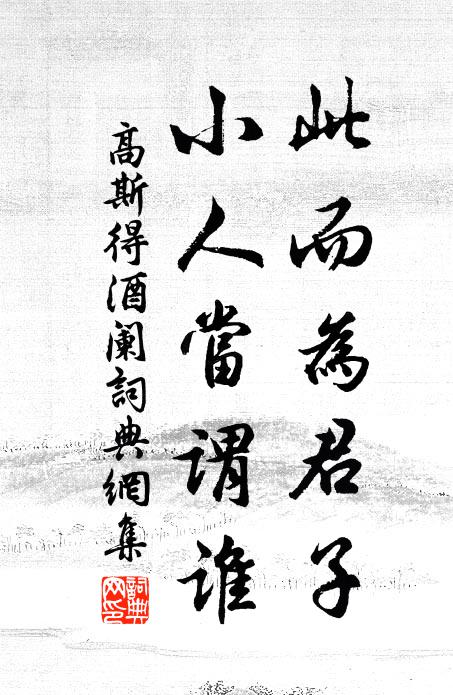 此而為君子
小人當謂誰
高斯得酒阑詞典網集
詞典
网